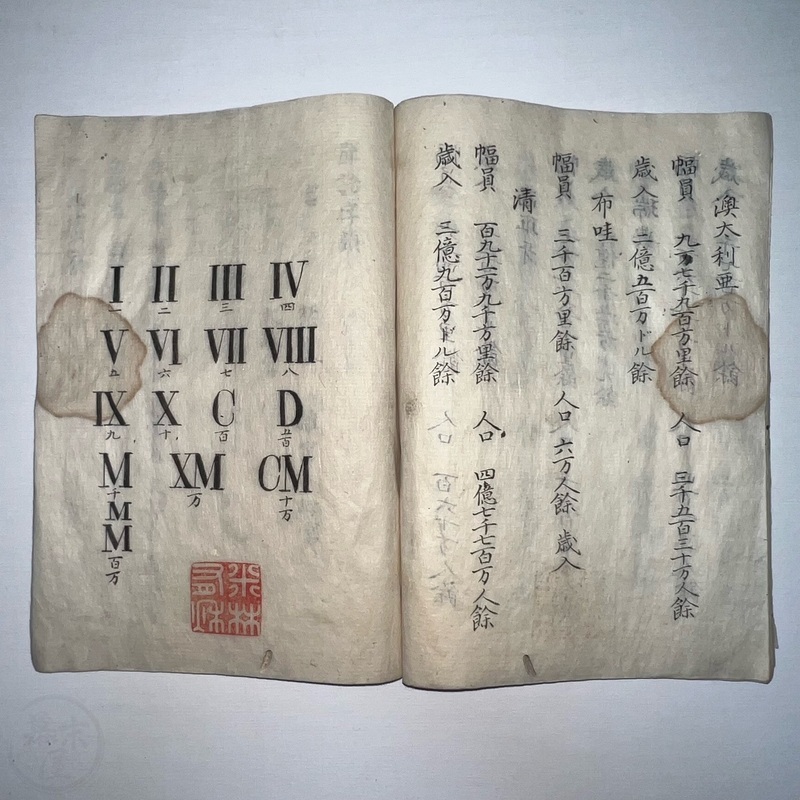 澳太利亜
幅員 九万七千九百方里餘 人口 三千五百三十万人餘
歳入 三億五百万ドル餘
布哇
幅員 三千百方里餘 人口 六万人餘 歳入
清
幅員 百九十二万九千方里餘 人口 四億七千七百万人餘
歳入 三億九百万ドル餘
I II III IV
一 二 三 四
V VI VII VIII
五 六 七 八
IX X C D
九 十 百 五百
M XM CM
千 万 十万
M
M
百万